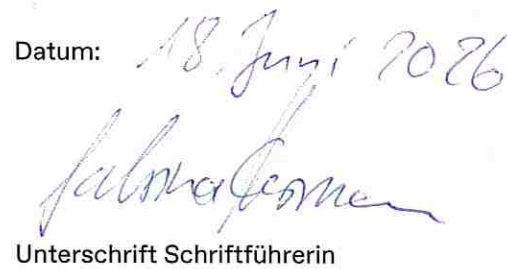 Datum: 18. Juni 2026
Unterschrift Schriftführerin